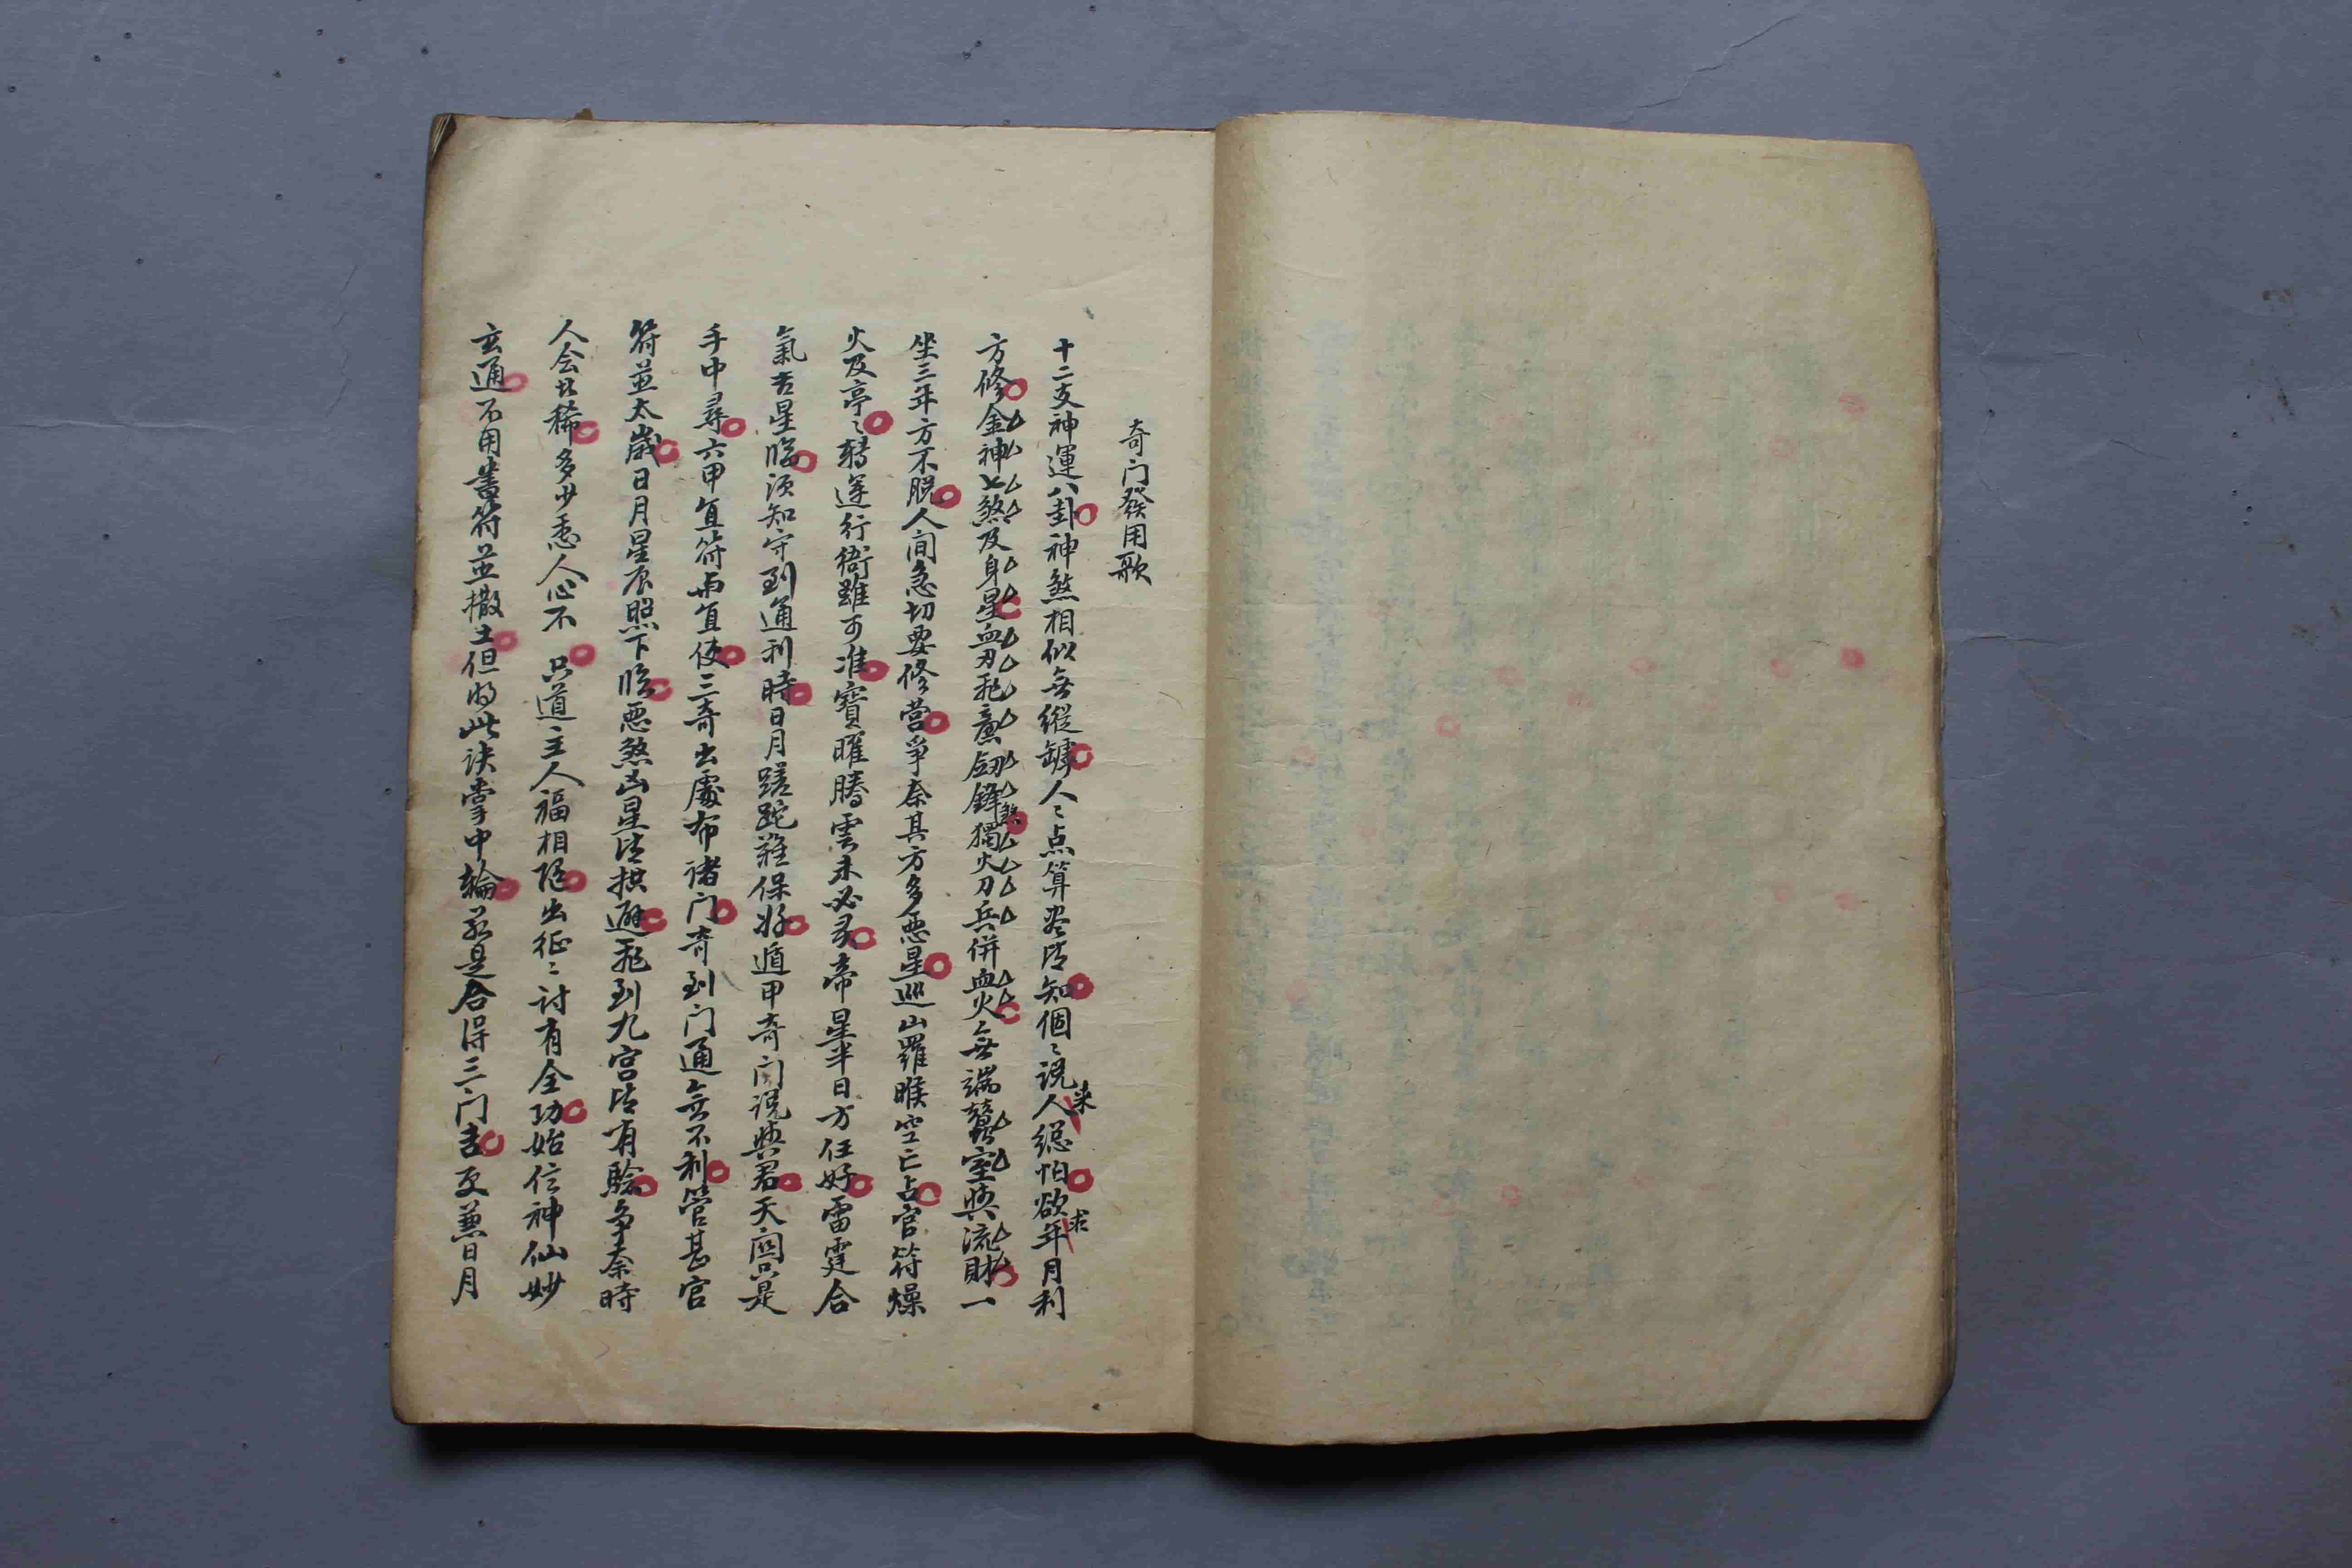 奇门發用歌
十二支神運八卦神煞相似無縱罅人〻点算老法知個〻説来人總怕欲求年月利
方修金神七煞及身星血刃飛廉劔鋒煞獨火刀兵併血火無端蠶室與流財一
坐三年方不脱人间急切要修营爭奈其方多惡星巡山羅睺空亡占官符燥
火及亭〻轉運行衙雖可准寳曜騰雲未必灵帝星半日方任好雷霆合
氣吉星臨须知守到通利時日月蹉跎難保好遁甲奇门説與君天関只是
手中尋六甲直符与直使三奇出處布诸门奇到门通無不利管甚官
符並太歲日月星辰照下臨惡煞凶星皆拱避飛到九宫皆有驗争奈時
人会者稀多少愚人心不 只道主人福相隨出征〻討有全功始信神仙妙
玄通不用書符並撒土但将此诀掌中輪若是合得三门吉更兼日月